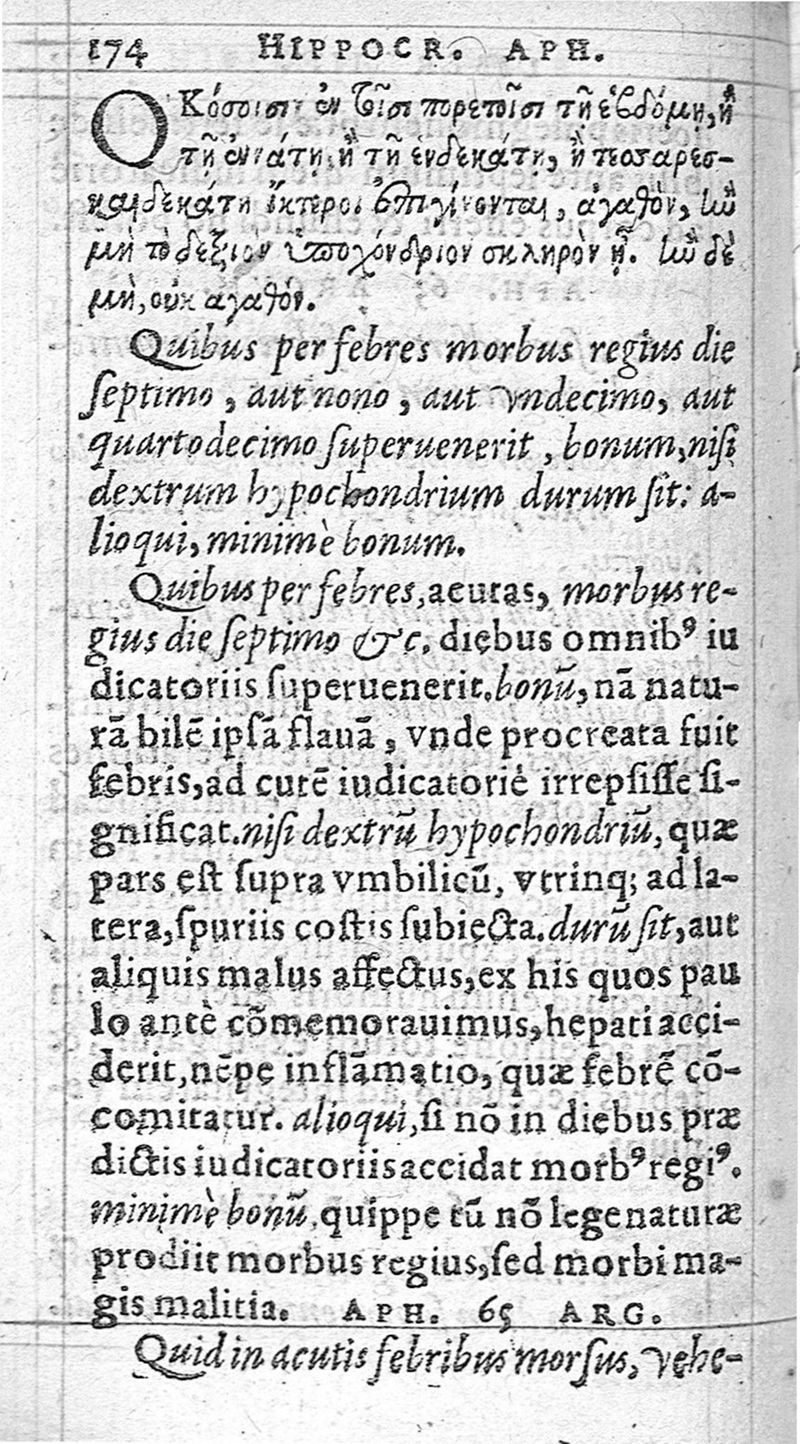 174 HIPPOCR. APH.
Ὁκόσοισι ἐν τοῖσι πυρετοῖσι τῇ ἑβδόμῃ, ἢ
τῇ ἐνάτῃ ἢ τῇ ἑνδεκάτῃ, ἢ τεσσαρεσ-
καιδεκάτῃ ἴκτεροι ἐπιγίνονται, ἀγαθὸν, ἢν
μὴ τὸ δεξιὸν ὑποχόνδριον σκληρὸν ᾖ. ἢν δὲ
μὴ, οὐκ ἀγαθόν.
Quibus per febres morbus regius die
septimo, aut nono, aut vndecimo, aut
quartodecimo superuenerit, bonum, nisi
dextrum hypochondrium durum sit: a-
lioqui, minimè bonum.
Quibus per febres, acutas, morbus re-
gius die septimo &c. diebus omnibꝰ iu
dicatoriis superuenerit. bonũ, nã natu-
rã bilẽ ipsã flauã, vnde procreata fuit
febris, ad cutẽ iudicatoriè irrepsisse si-
gnificat. nisi dextrũ hypochondriũ, quæ
pars est supra vmbilicũ, vtrinq; ad la-
tera, spuriis costis subiecta. durũ sit, aut
aliquis malus affectus, ex his quos pau
lo antè cõmemorauimus, hepati acci-
derit, nẽpe inflãmatio, quæ febrẽ cõ-
comitatur. alioqui, si nõ in diebus præ
dictis iudicatoriis accidat morbꝰ regiꝰ.
minimè bonũ, quippe tũ nõ lege naturæ
prodiit morbus regius, sed morbi ma-
gis malitia. APH. 65 ARG.
Quid in acutis febribus morsus, vehe-